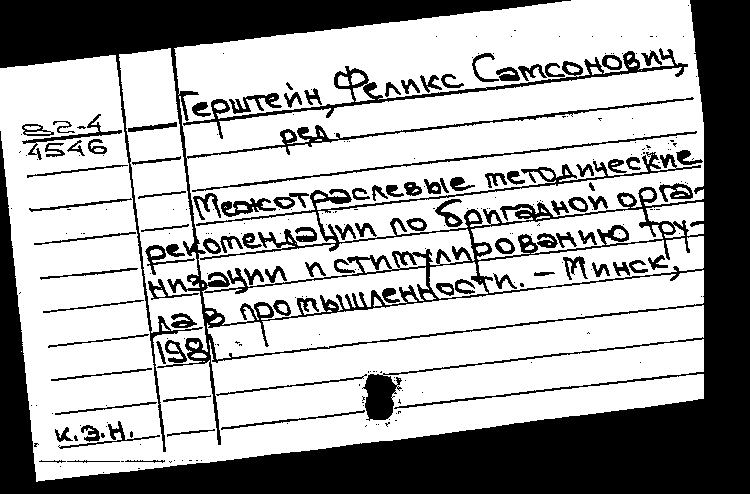 Герштейн, Феликс Самсонович,
82-4
4546
ред.
Межотраслевые методические
рекомендации по бригадной орга-
низации и стимулированию тру-
да в промышленности. – Минск,
1981.
к.э.н.